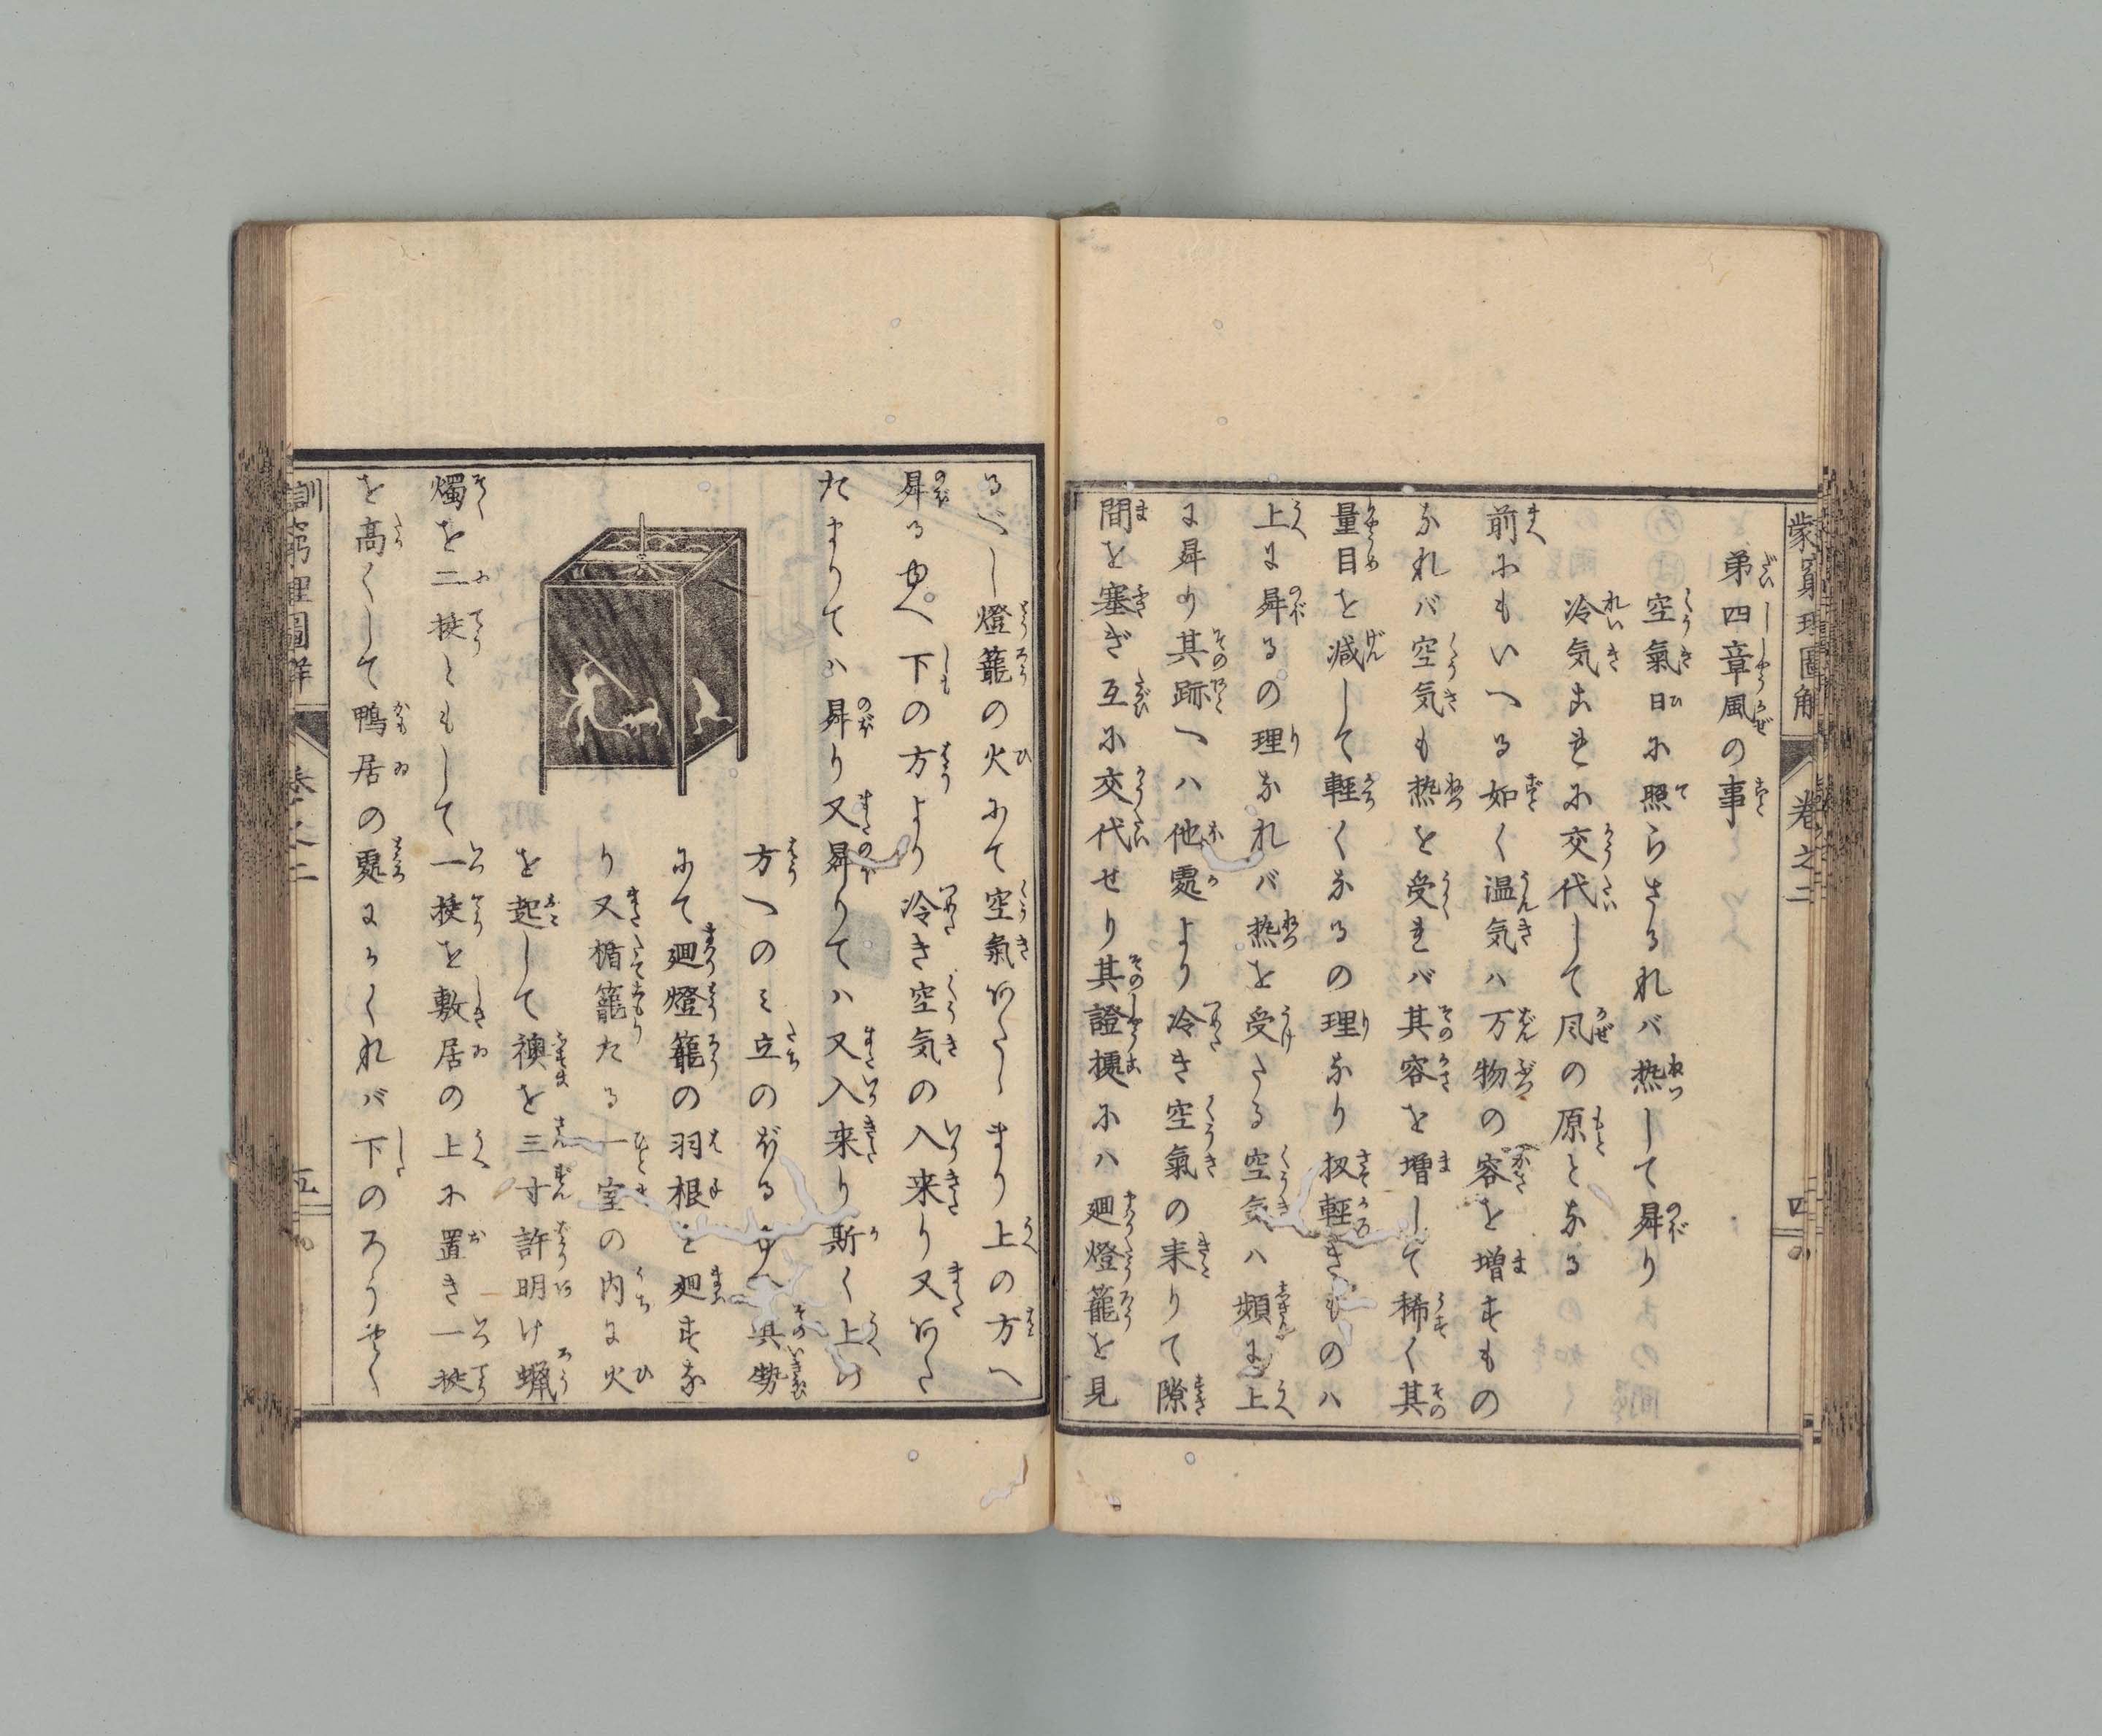 蒙窮理圖解 卷之二 四
第四章風の事
空氣日に照らさるれバ热して昇り
冷気これに交代して風の原となる
前にもいへる如く温気ハ万物の容を増すもの
なれバ空気も热を受れバ其容を増して稀く其
量目を減して軽くなるの理なり扨軽きものハ
上に昇るの理なれバ热を受たる空気ハ頻に上
に昇り其跡へハ他處より冷き空氣の来りて隙
間を塞ぎ互に交代せり其證據にハ廻燈籠を見
るべし燈籠の火にて空氣あたゝまり上の方へ
昇るゆへ下の方より冷き空気の入来り又あた
たまりてハ昇り又昇りてハ又入来り斯く上け
方へのミ立のぼるゆへ其勢
にて廻燈籠の羽根を廻すな
り又楯籠たる一室の内に火
を起して襖を三寸許明け蝋
燭を二挺ともして一挺を敷居の上に置き一挺
を高くして鴨居の處にかくれバ下のろうそく
訓窮理圖解 卷之二 五